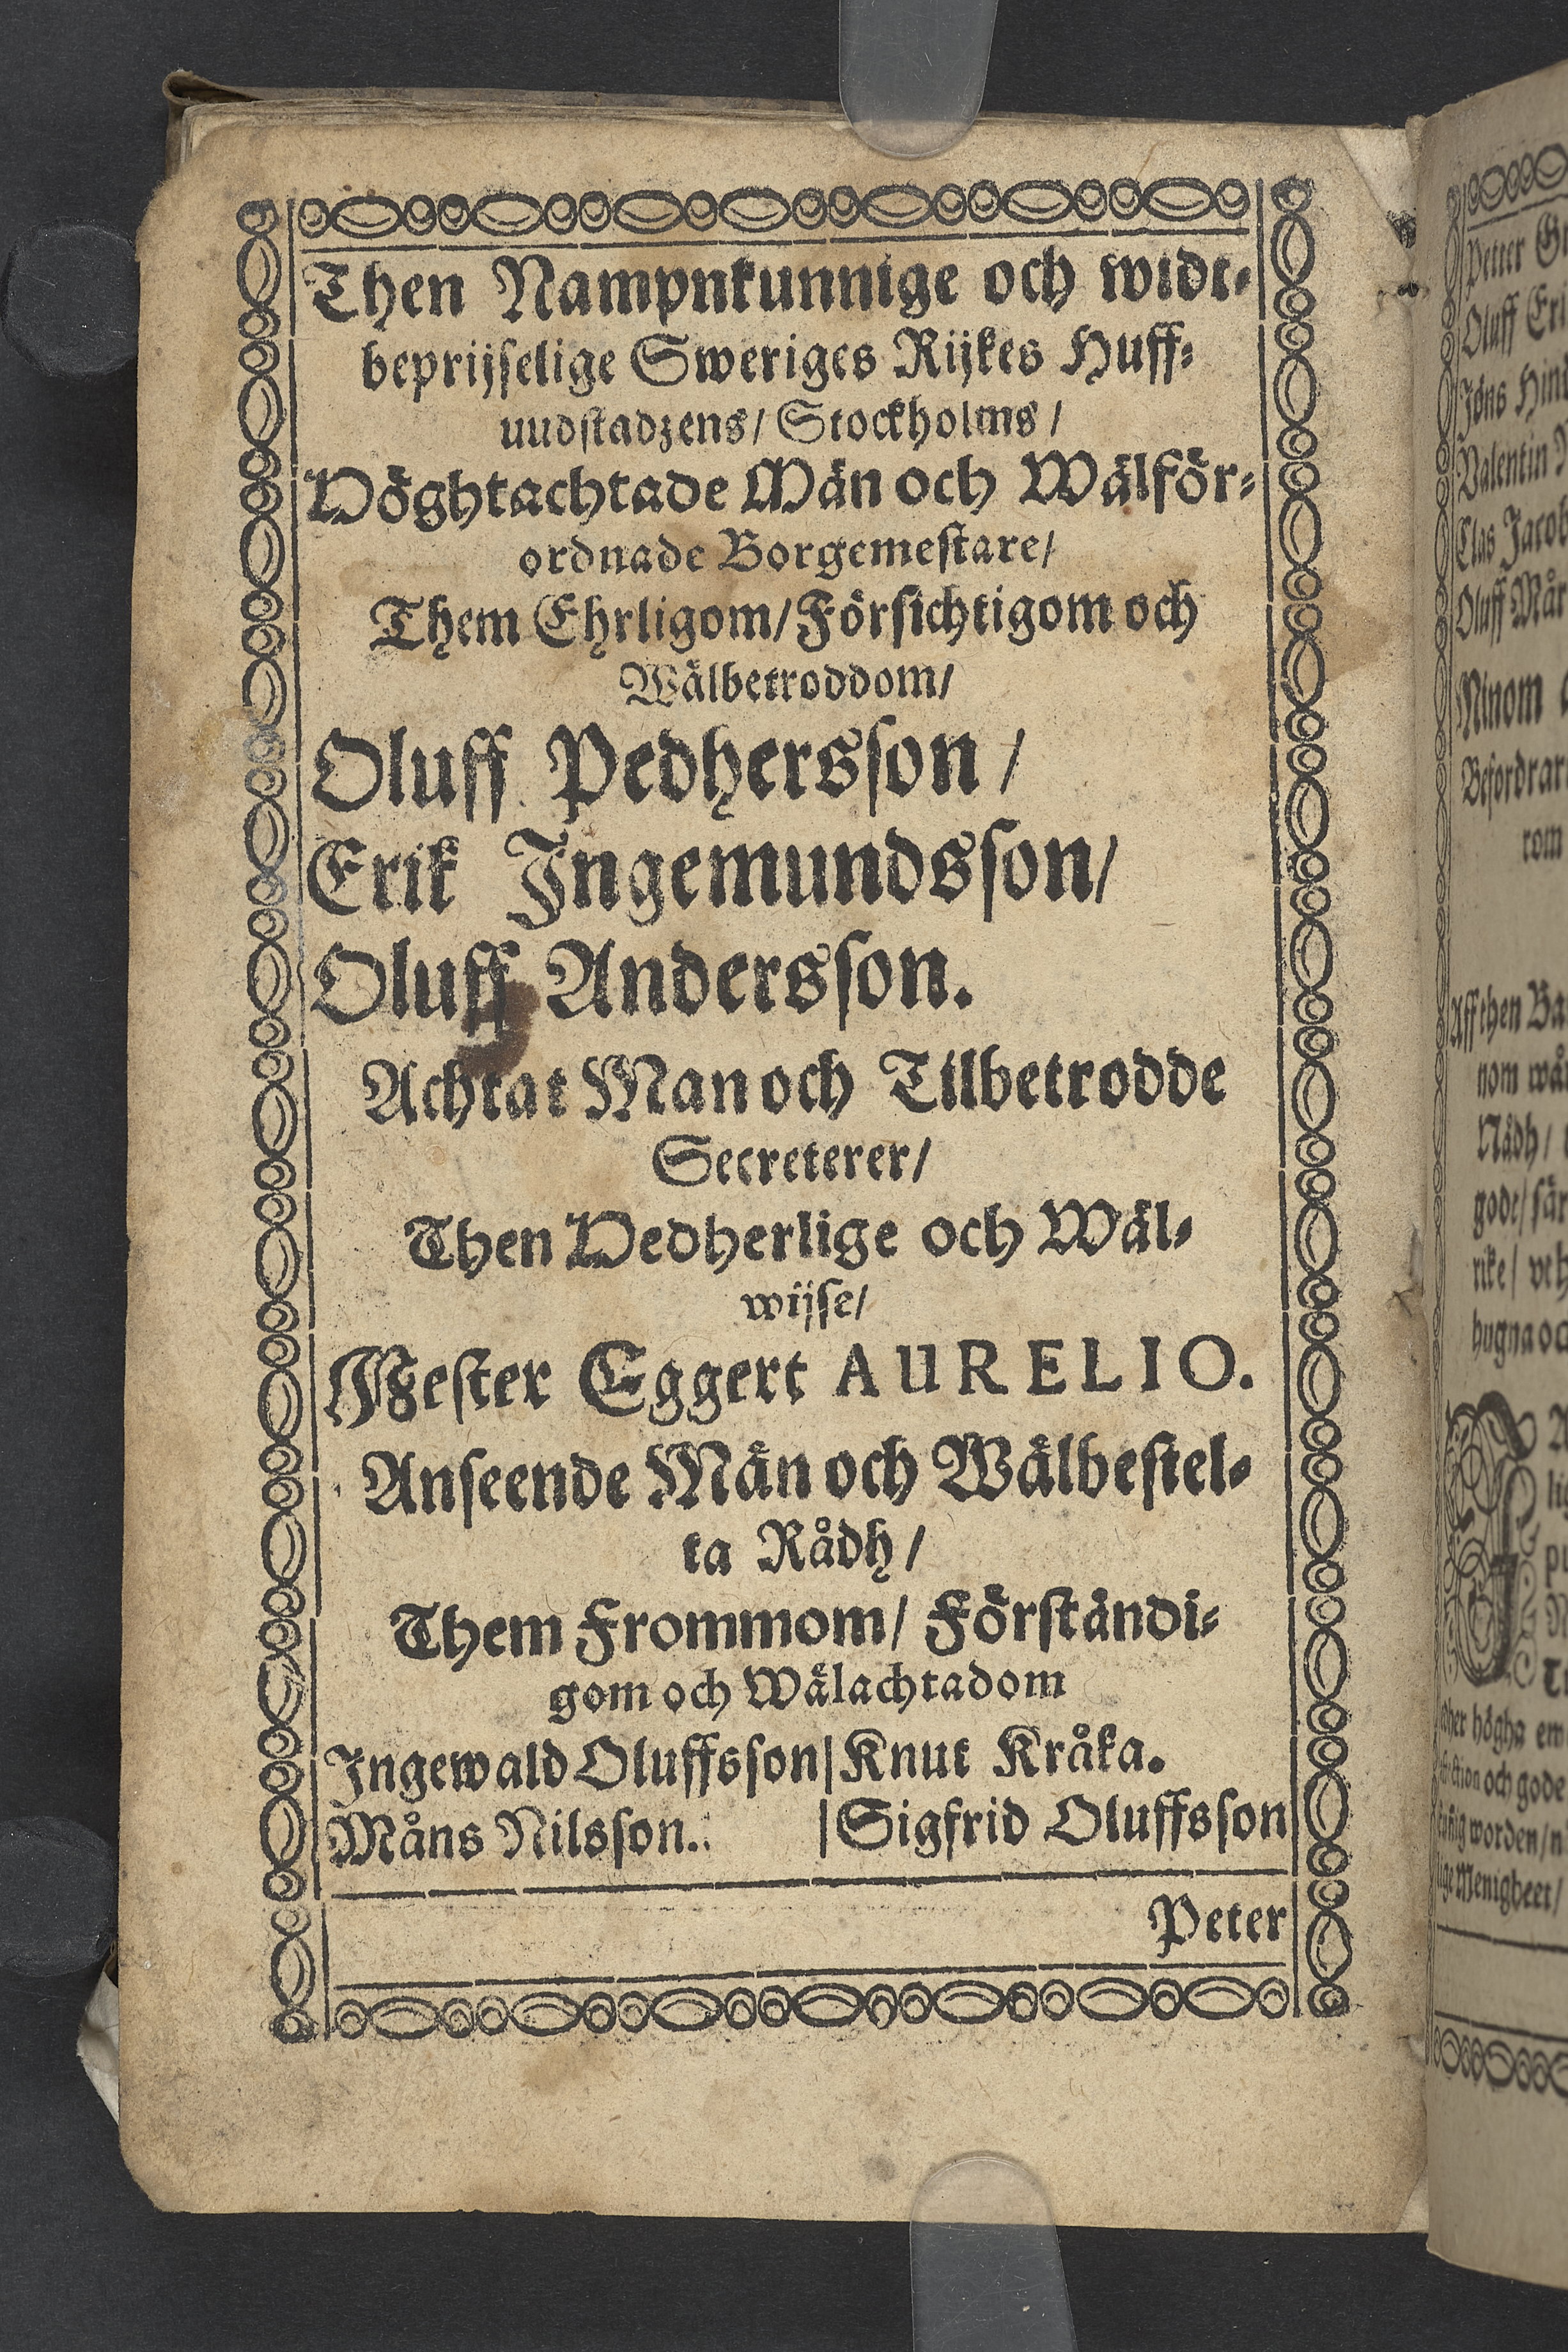 Then Nampnkunnige och widt-
beprijselige Sweriges Rijkes Huff-
uudstadzens/ Stockholms/
Wöghtachtade Män och Wälför-
ordnade Borgemestare/
Them Ehrligom/ Försichtigom och
Wälbetroddom/
Oluff Pedhersson/
Erik Ingemundsson/
Oluff Andersson.
Achtat Man och Tilbetrodde
Secreterer/
Then Wedherlige och Wäl-
wijse/
Mester Eggert AURELIO.
Anseende Män och Wälbestel-
ta Rådh/
Them Frommom/ Förständi-
gom och Wälachtadom
Ingewald Oluffsson| Knut Kråka.
Måns Nilsson. | Sigfrid Oluffsson
Peter
Petter
Oluff
Jöns
Valentin
Clas
Oluff
Ninom
rom
Aff then
nom
Nådh/
gode/
rike/
hugna
högha
och gode
worden/
Menigheet/